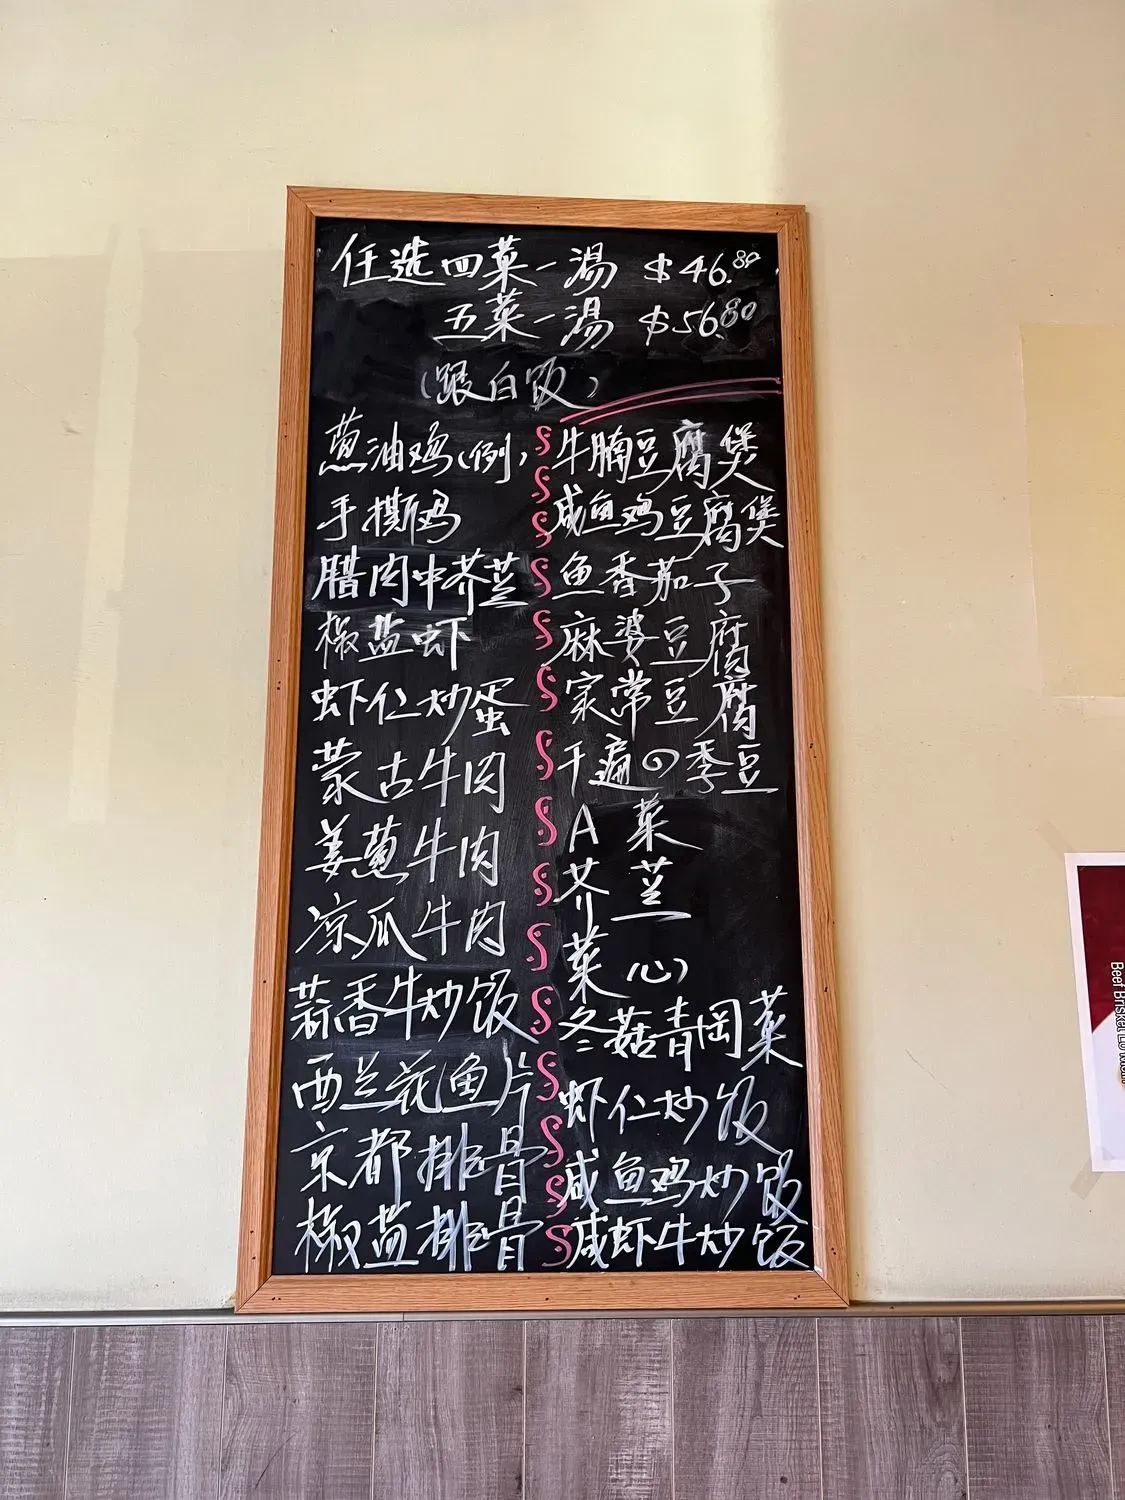 任选四菜一湯 $46.80
五菜一湯 $56.80
(跟白饭)
葱油鸡(例)
手撕鸡
腊肉中芥兰
椒盐虾
虾仁炒蛋
蒙古牛肉
姜葱牛肉
凉瓜牛肉
蒜香牛炒饭
西兰花鱼片
京都排骨
椒盐排骨
牛腩豆腐煲
咸鱼鸡豆腐煲
鱼香茄子
麻婆豆腐
家常豆腐
干遍の季豆
A菜
芥兰
菜心
冬菇青岡菜
虾仁炒饭
咸鱼鸡炒饭
咸虾牛炒饭
Beef Brisket Lo Mein